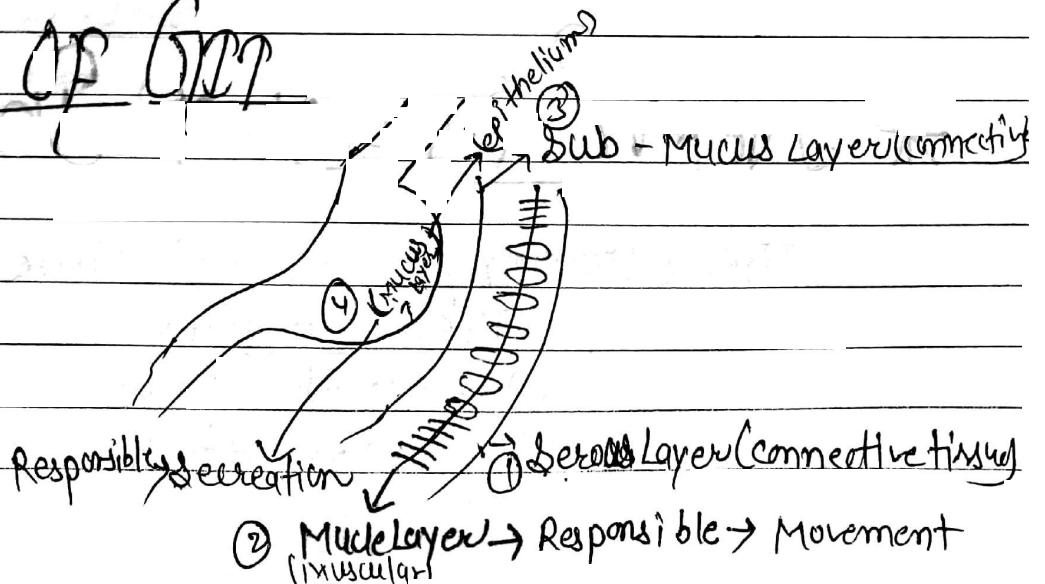 OF GIT
epithelium
③
Sub - Mucus Layer (connective
④ (Mucus
Layer
Responsible Secreation
① Serous Layer (connective tissue)
② Mucle Layer → Responsible → Movement
(muscular)